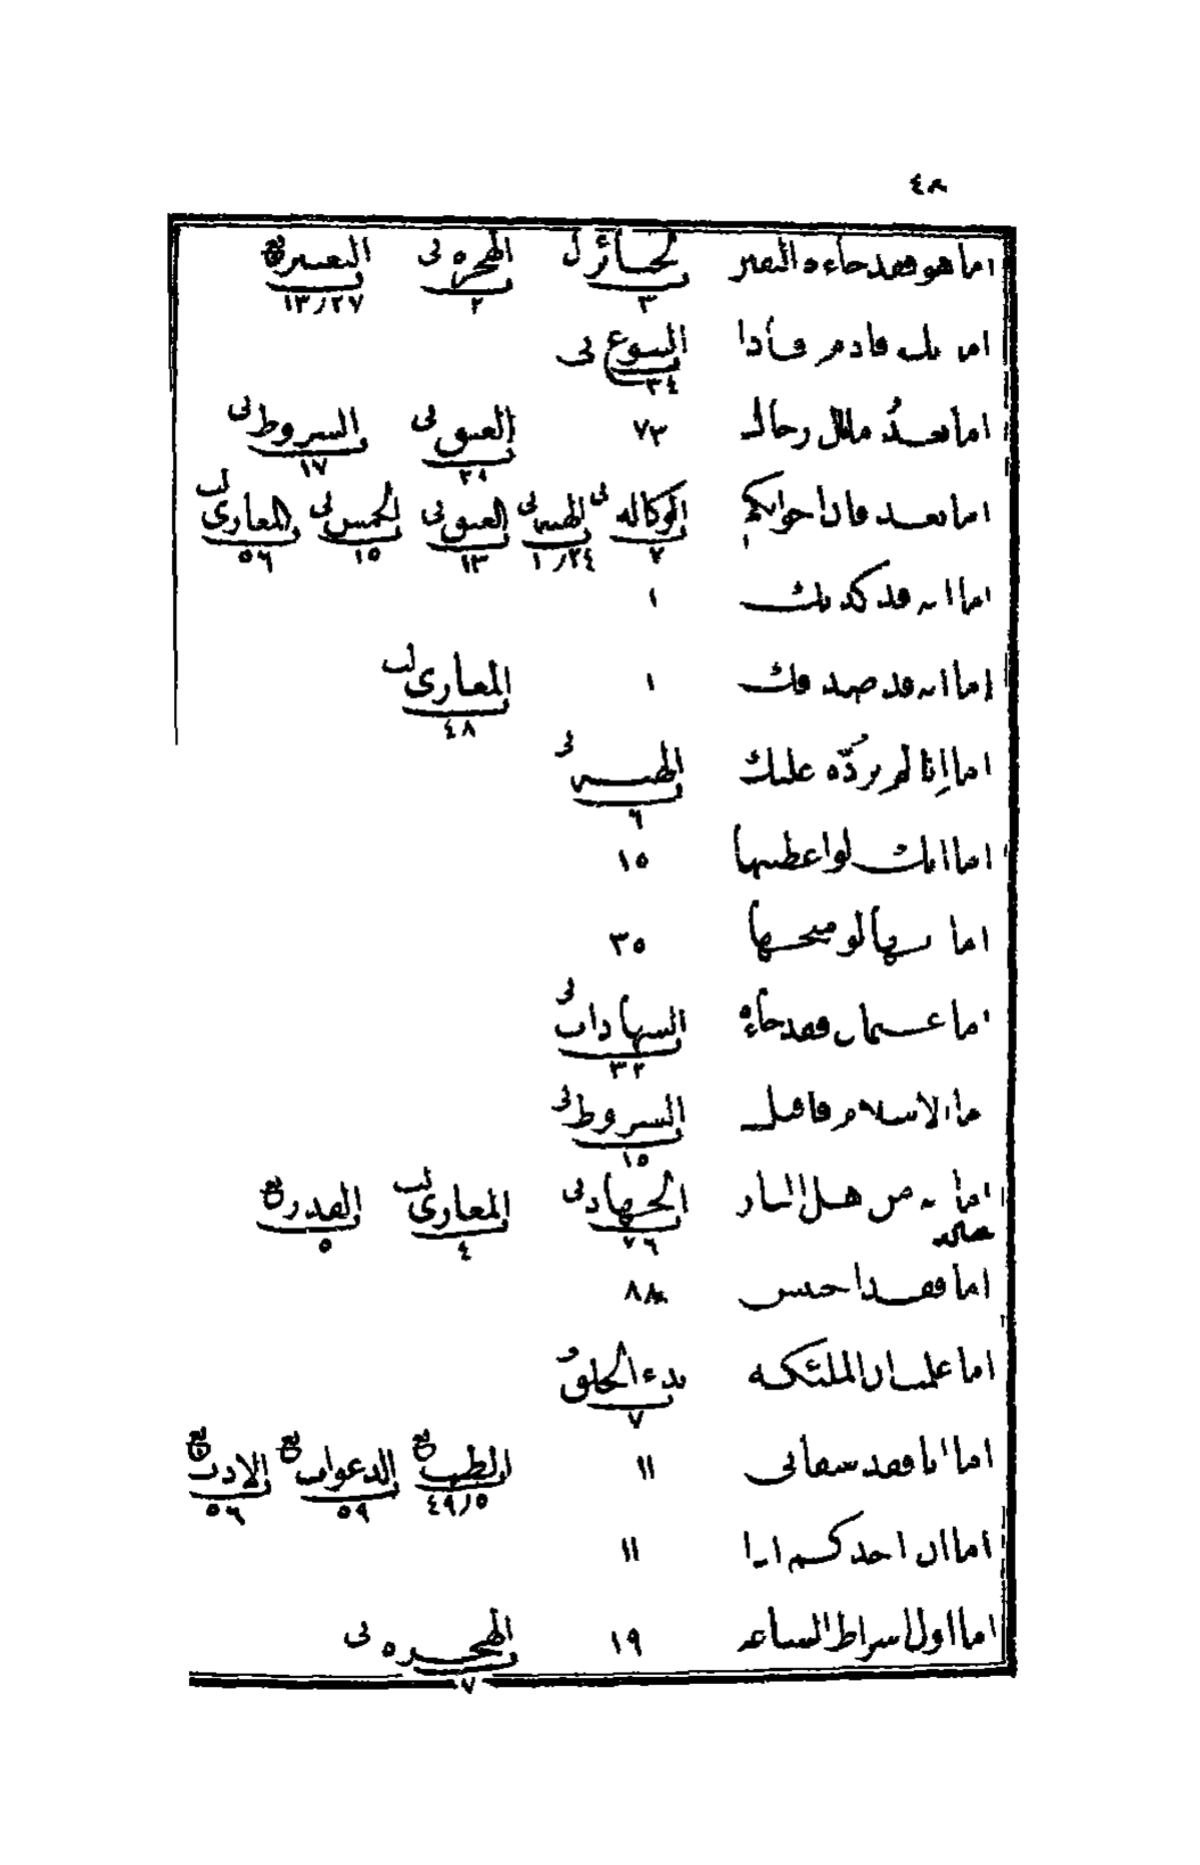 ٤٨
اما هو فقد جاءه اليقين الجنائز لى ٣ الهجره لى ٢ التعبير بع ١٣/٢٧
اما فاذا البيوع لى ٣٤
اما بعدُ مابال رجال ٧٣ العتق لى ٢٩ الشروط لى ١٧
اما بعد فان اخوانكم الوكاله لى ٧ الهبه لى ١/٢٤ العتق لى ١٣ الخمس لى ١٥ المغازى لب ٥٦
اما انه قد كذبك ١
اما انه قد صدقك ١ المغازى لب ٤٨
اما إنا لم نردّه عليك الهبه لى ٦
اما انك لو اعطيتها ١٥
اما انها لو منحتها ٣٥
اما عثمان فقد جاءه الشهادات لى ٣٢
اما الاسلام فاقبل الشروط لى ١٥
اما انه من اهل النار الجهاد لى ٧٦ المغازى لب ٤ القدر بع ٥
اما فقد احتبس ٨٨
اما علمت ان الملئكه بدء الخلق ٧
اما انا فقد شفانى ١١ الطب بع ٤٩/٥ الدعوات بع ٥٩ الادب بع ٥٦
اما ان احدكم اذا ١١
اما اول اشراط الساعه ١٩ الهجره لى ٧